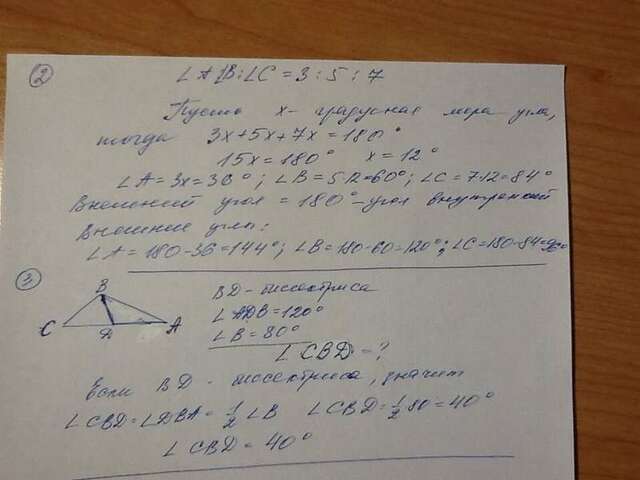 ② ∠A:∠B:∠C = 3 : 5 : 7
Пусть x - градусная мера угла,
тогда 3x+5x+7x=180°
15x=180° x=12°
∠A=3x=36°; ∠B=5·12=60°; ∠C=7·12=84°
Внешний угол = 180°-угол внутренний
Внешние углы:
∠A=180-36=144°; ∠B=180-60=120°; ∠C=180-84=96°
③ B
C D A
BD - биссектриса
∠ADB=120°
∠B=80°
∠CBD=?
Если BD - биссектриса, значит
∠CBD=∠DBA=1/2∠B ∠CBD=1/2 80=40°
∠CBD=40°